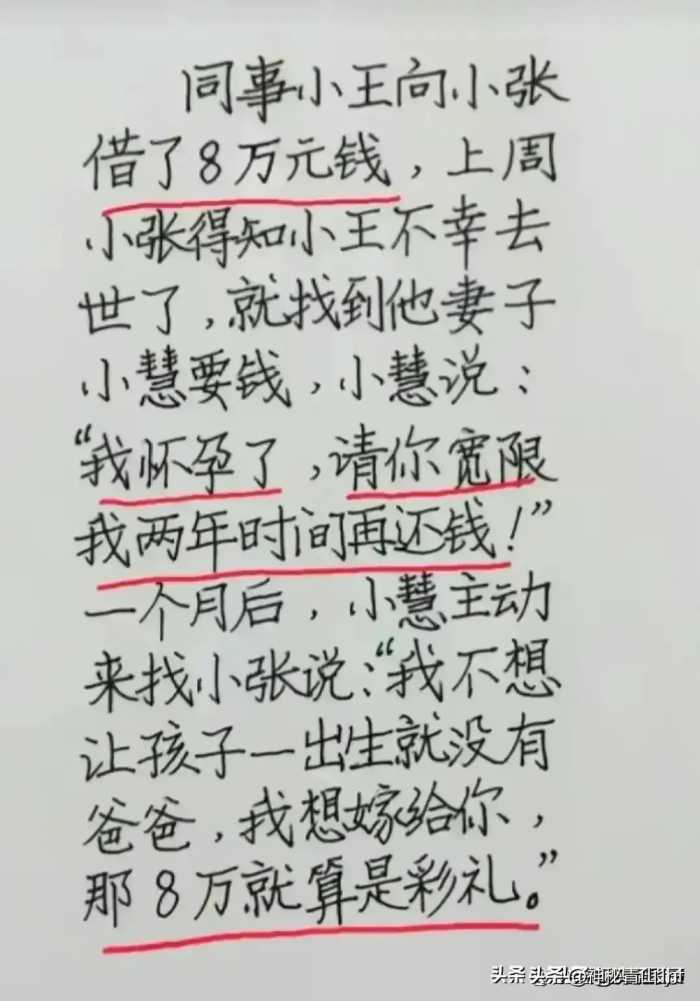 同事小王向小张
借了8万元钱，上周
小张得知小王不幸去
世了，就找到他妻子
小慧要钱，小慧说：
“我怀孕了，请你宽限
我两年时间再还钱！”
一个月后，小慧主动
来找小张说：“我不想
让孩子一出生就没有
爸爸，我想嫁给你，
那8万就算是彩礼。”
头条 头条 @神秘